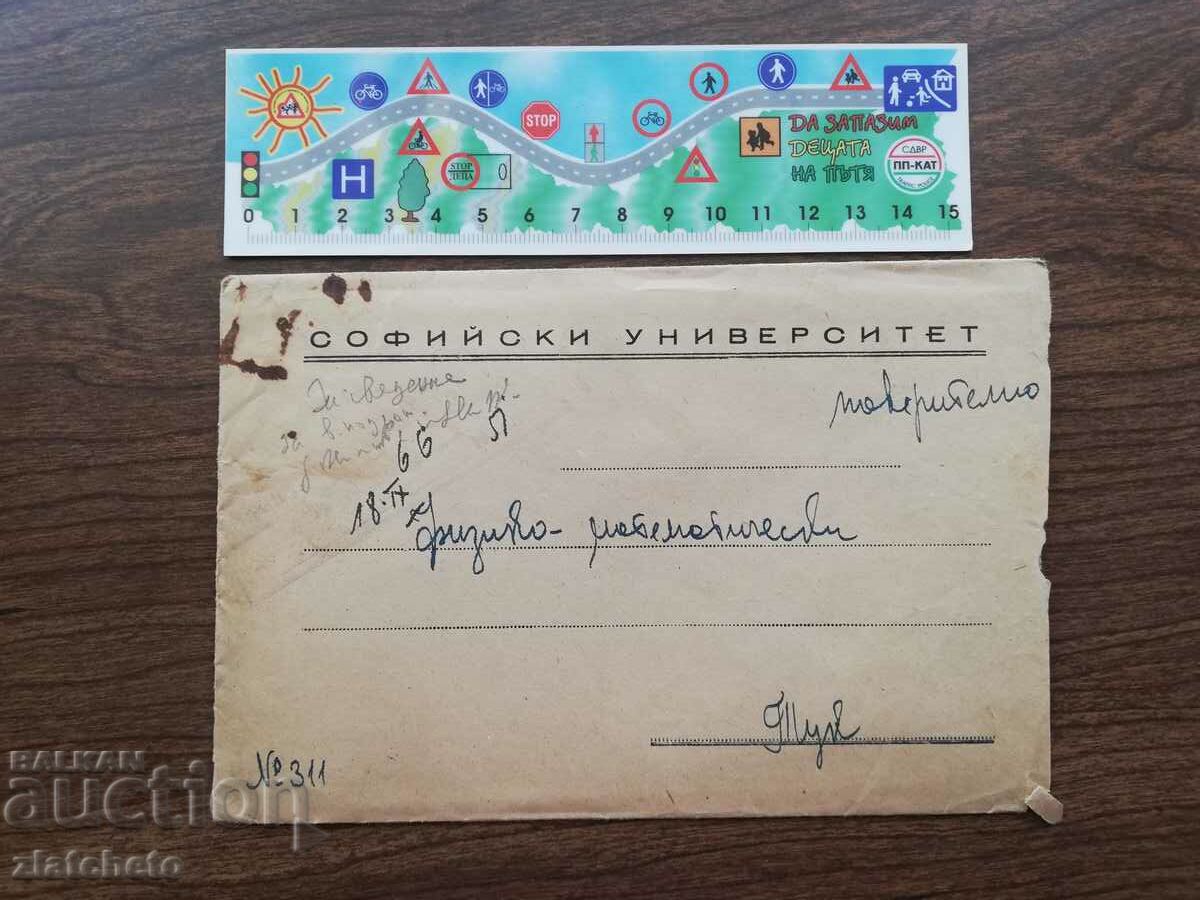 STOP
H
STOP
ДЕЦА
ДА ЗАПАЗИМ
ДЕЦАТА
НА ПЪТЯ
СДВР
ПП-КАТ
TRAFFIC POLICE
0 1 2 3 4 5 6 7 8 9 10 11 12 13 14 15
СОФИЙСКИ УНИВЕРСИТЕТ
За сведение
поверително
за
66
51
18.IX
физико-математически
Тук
№311
BALKAN
auction
zlatcheto